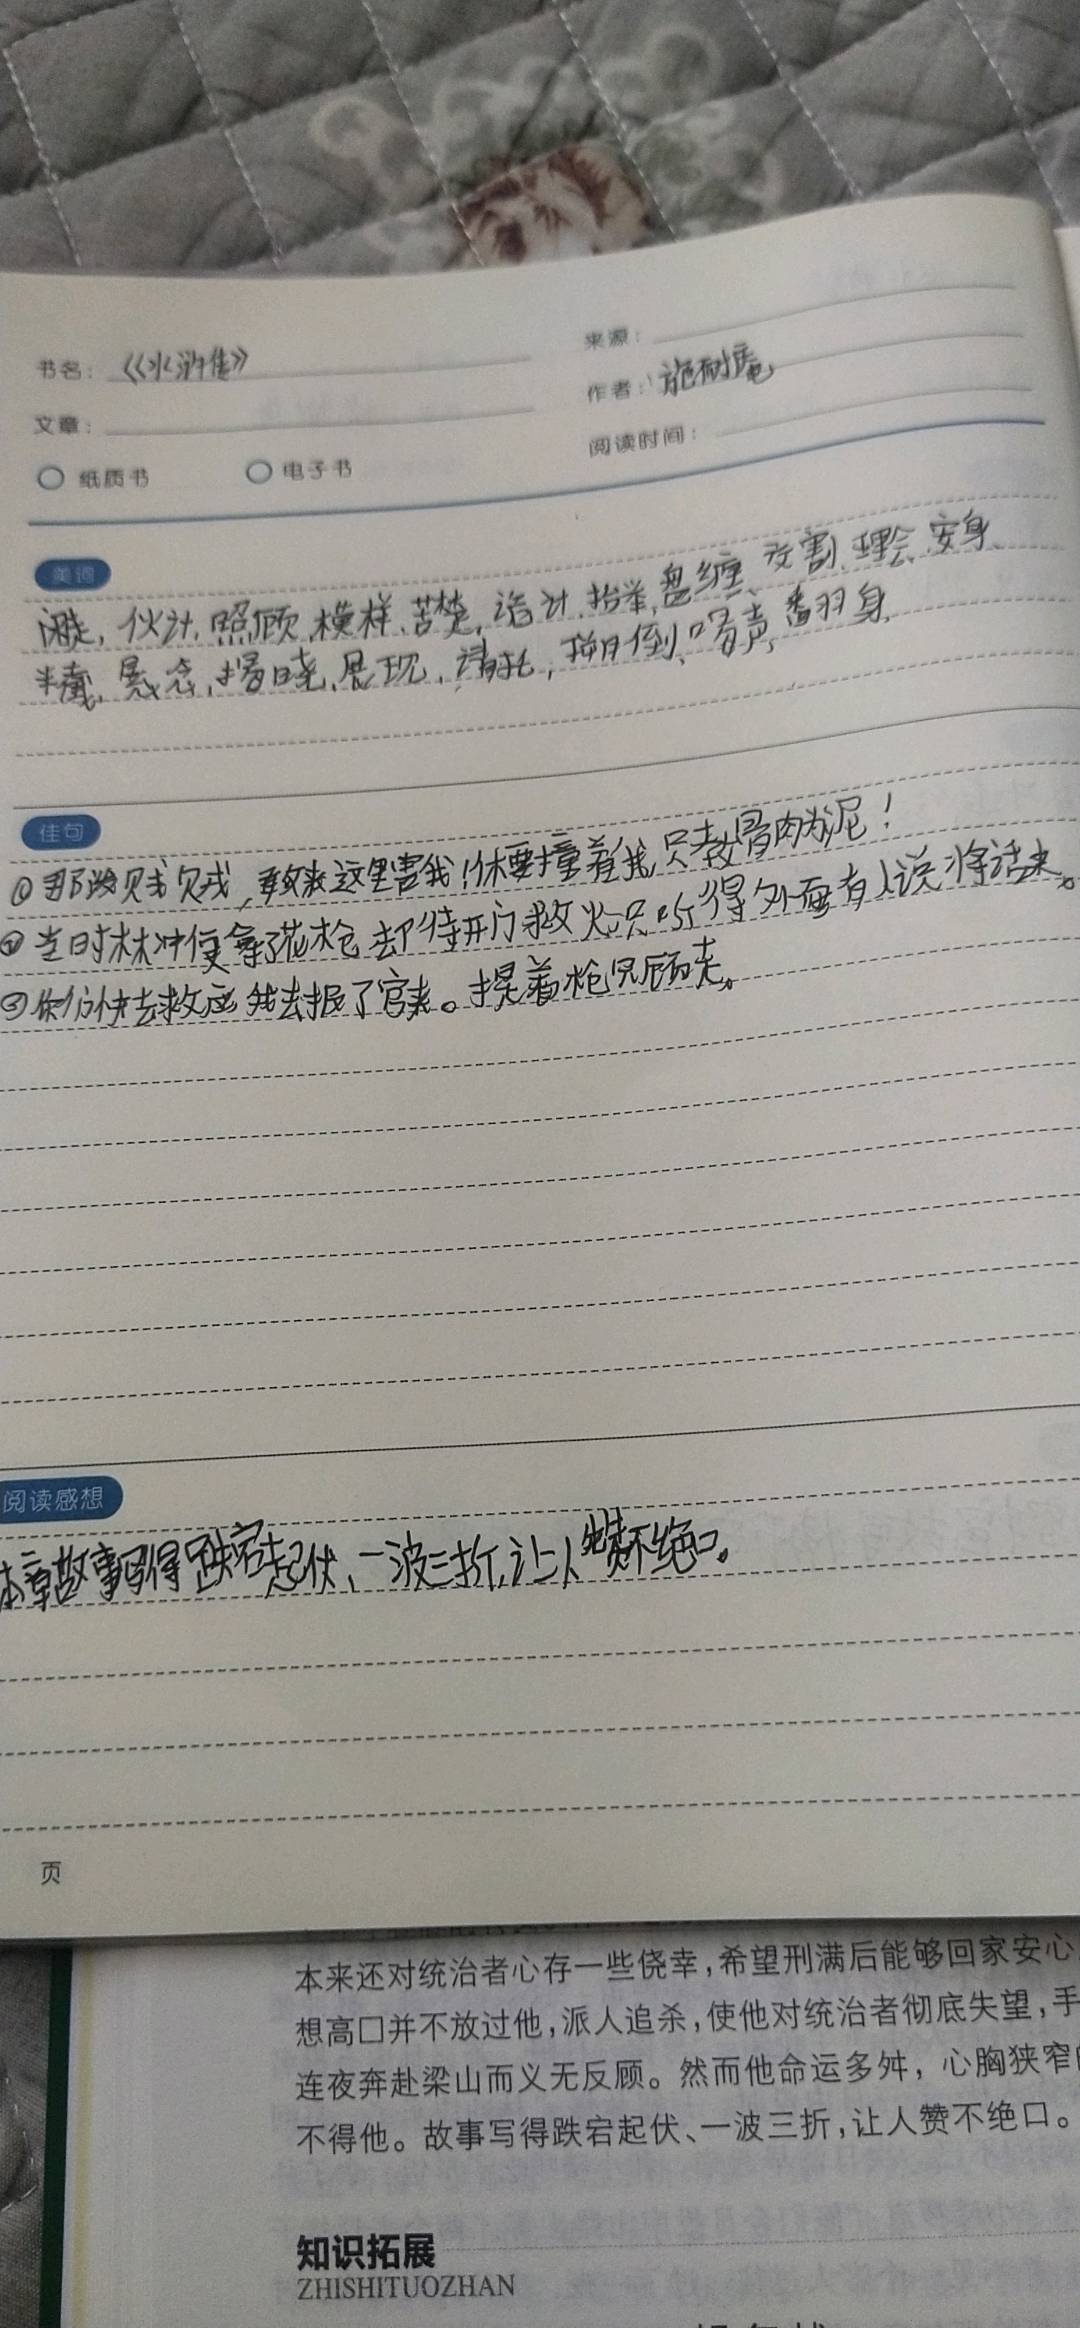 来源：
书名：《水浒传》
作者：施耐庵
文章：
阅读时间：
纸质书 电子书
美词
闲走，伙计，照顾，模样、苦楚，活计，抬举，盘缠、交割、理会、安身、
悬念，揭晓，展现，请托，推倒、唱声、翻身、
佳句
①那泼贼贱贼，敢来这里害我！休要撞着我，只教骨肉为泥！
②当时林冲便拿了花枪却待开门救火，只听得外面有人说将话来。
③你们快去救应我去报了官来。提着枪只顾走。
阅读感想
本章故事写得跌宕起伏、一波三折，让人赞不绝口。
页
本来还对统治者心存一些侥幸，希望刑满后能够回家安心
想高囗并不放过他，派人追杀，使他对统治者彻底失望，手
连夜奔赴梁山而义无反顾。然而他命运多舛，心胸狭窄
不得他。故事写得跌宕起伏、一波三折，让人赞不绝口。
知识拓展
ZHISHITUOZHAN